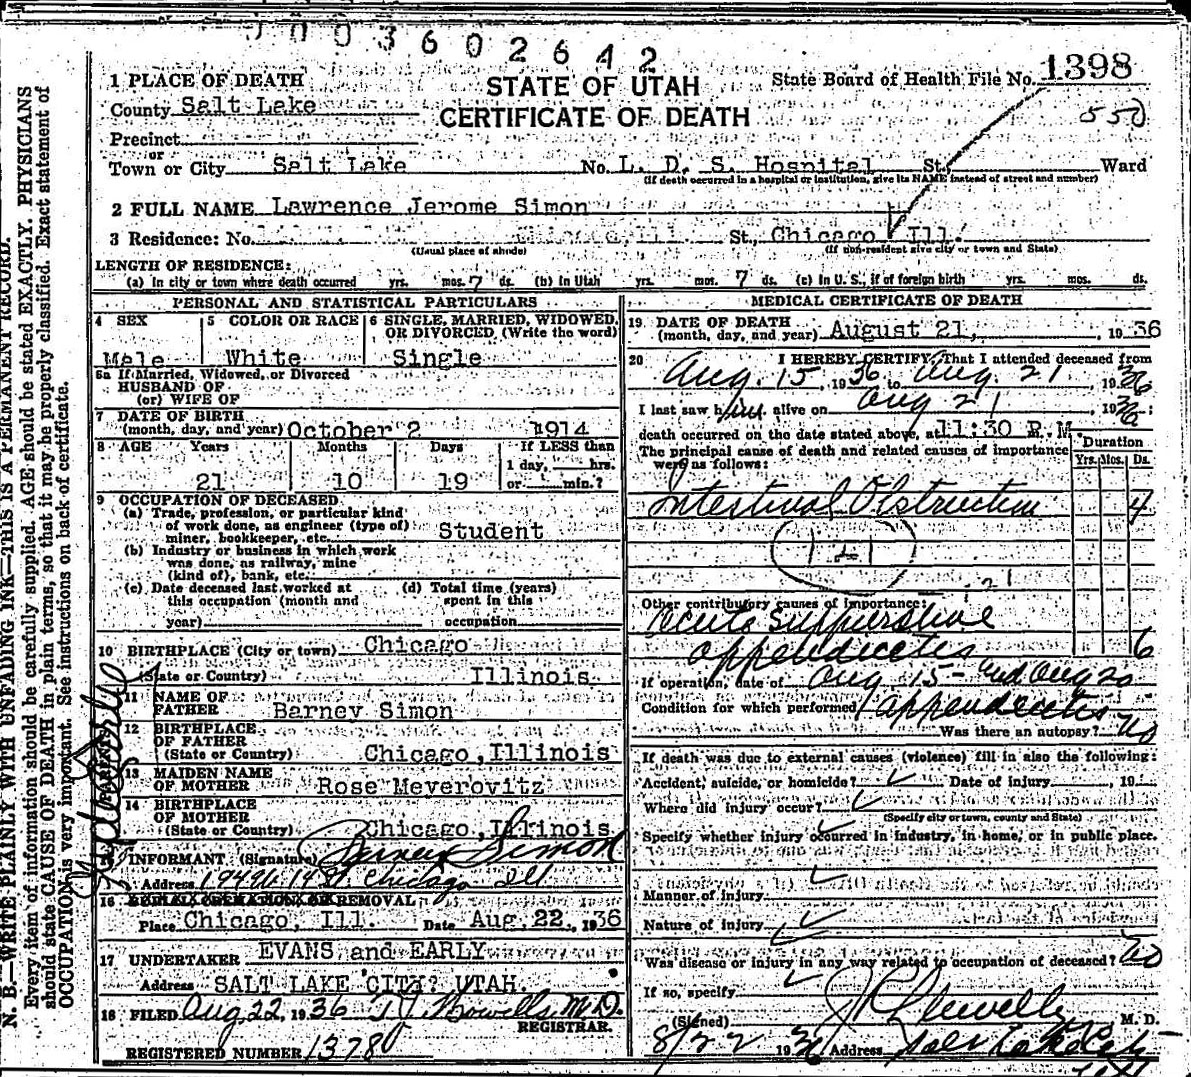 0003602642
1 PLACE OF DEATH
STATE OF UTAH
State Board of Health File No. 1398
County Salt Lake
CERTIFICATE OF DEATH
550
Precinct
or
Town or City Salt Lake No. L. D. S. Hospital St., Ward
(If death occurred in a hospital or institution, give its NAME instead of street and number)
2 FULL NAME Lawrence Jerome Simon
3 Residence: No. St., Chicago Ill.
(Usual place of abode) (If non-resident give city or town and State)
LENGTH OF RESIDENCE:
(a) In city or town where death occurred yrs. mos. 7 ds. (b) In Utah yrs. mos. 7 ds. (c) In U. S., if of foreign birth yrs. mos. ds.
PERSONAL AND STATISTICAL PARTICULARS
4 SEX 5 COLOR OR RACE 6 SINGLE, MARRIED, WIDOWED,
OR DIVORCED, (Write the word)
Male White Single
6a If Married, Widowed, or Divorced
HUSBAND OF
(or) WIFE OF
7 DATE OF BIRTH
(month, day, and year) October 2 1914
8 AGE Years Months Days If LESS than
1 day, hrs.
21 10 19 or min.?
9 OCCUPATION OF DECEASED
(a) Trade, profession, or particular kind
of work done, as engineer (type of)
miner, bookkeeper, etc. Student
(b) Industry or business in which work
was done, as railway, mine
(kind of), bank, etc.
(c) Date deceased last worked at (d) Total time (years)
this occupation (month and spent in this
year) occupation
10 BIRTHPLACE (City or town) Chicago
(State or Country) Illinois
11 NAME OF
FATHER Barney Simon
12 BIRTHPLACE
OF FATHER
(State or Country) Chicago, Illinois
13 MAIDEN NAME
OF MOTHER Rose Meyerovitz
14 BIRTHPLACE
OF MOTHER
(State or Country) Chicago, Illinois
INFORMANT (Signature) Barney Simon
Address Chicago Ill
16 BURIAL, CREMATION OR REMOVAL
Place Chicago, Ill. Date Aug. 22, 1936
17 UNDERTAKER EVANS and EARLY
Address SALT LAKE CITY, UTAH.
18 FILED Aug 22, 1936 M.D.
REGISTRAR.
REGISTERED NUMBER 1378
MEDICAL CERTIFICATE OF DEATH
19 DATE OF DEATH
(month, day, and year) August 21, 1936
20 I HEREBY CERTIFY, That I attended deceased from
Aug. 15, 1936 to Aug. 21, 1936
I last saw him alive on Aug 21, 1936;
death occurred on the date stated above, at 11:30 P.M.
The principal cause of death and related causes of importance
were as follows:
Duration
Yrs. Mos. Ds.
Intestinal Obstruction 4
Other contributory causes of importance:
Acute suppurative
appendicitis 6
If operation, date of Aug 15 - and Aug 20
Condition for which performed appendicitis
Was there an autopsy? no
If death was due to external causes (violence) fill in also the following:
Accident, suicide, or homicide? Date of injury , 19
Where did injury occur?
(Specify city or town, county and State)
Specify whether injury occurred in industry, in home, or in public place.
Manner of injury
Nature of injury
Was disease or injury in any way related to occupation of deceased? no
If so, specify
(Signed) M. D.
8/22 1936 Address Salt Lake City
N. B.—WRITE PLAINLY WITH UNFADING INK—THIS IS A PERMANENT RECORD.
Every item of information should be carefully supplied. AGE should be stated EXACTLY. PHYSICIANS
should state CAUSE OF DEATH in plain terms, so that it may be properly classified. Exact statement of
OCCUPATION is very important. See instructions on back of certificate.